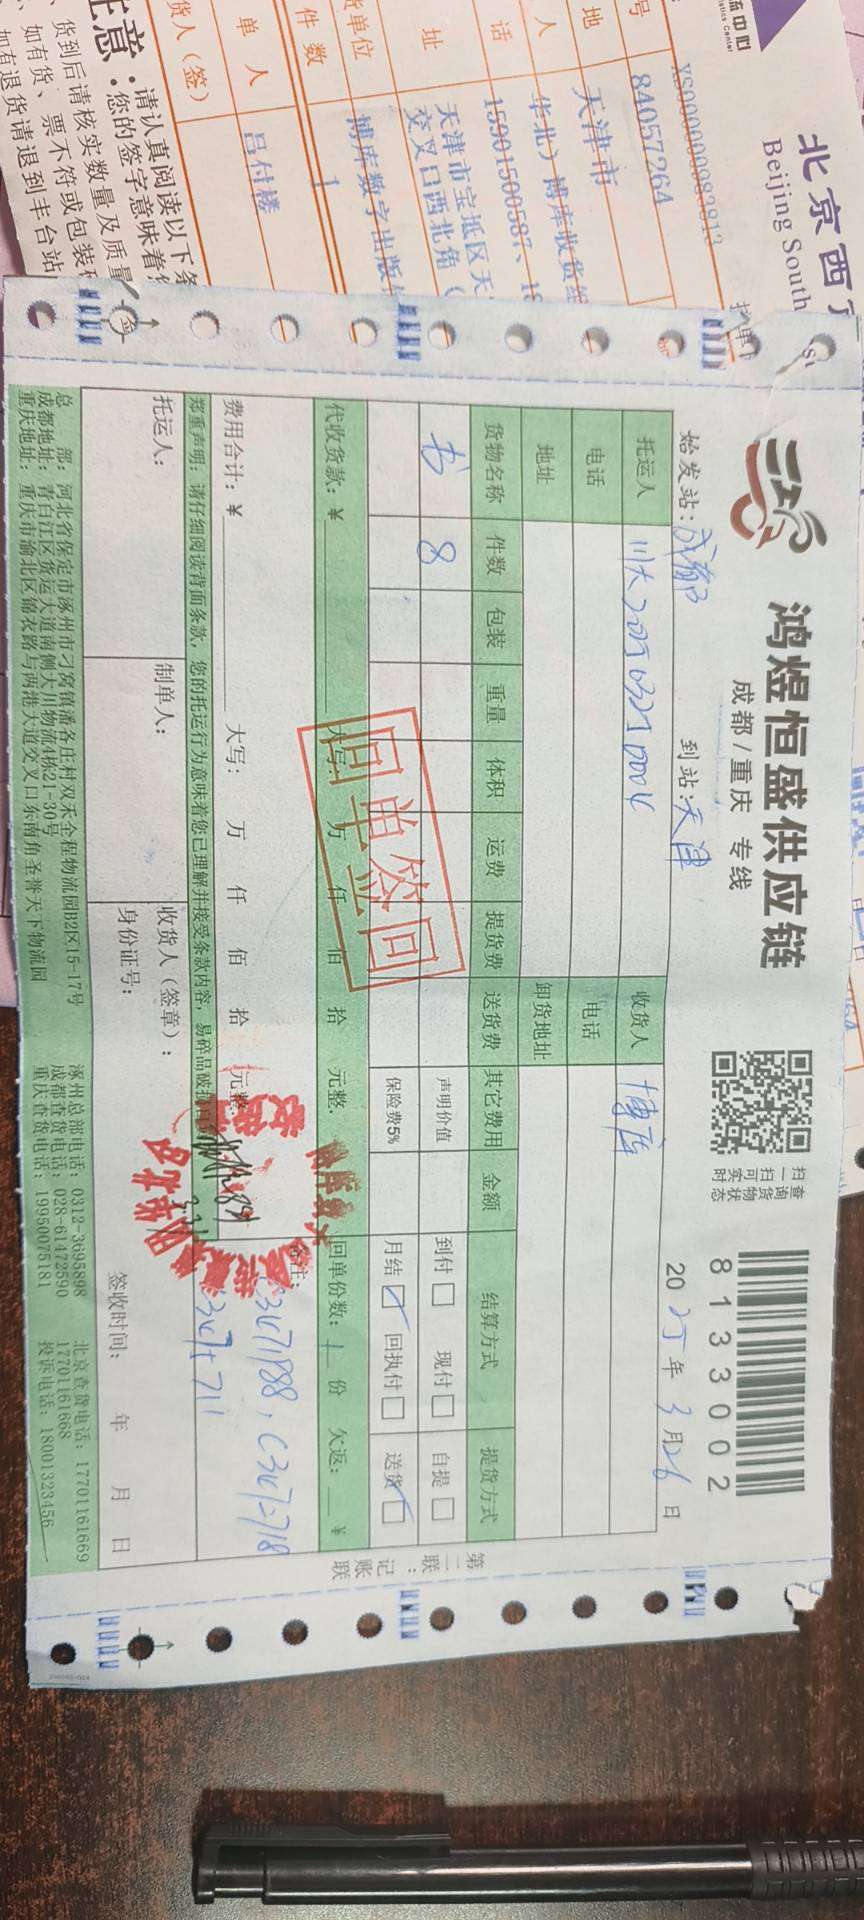 北京西
Beijing South
XS0000000083813
84057264
天津市
华北)博库收货组
15901500587、18
天津市宝坻区天
交叉口西北角(
货单位
博库数字出版
件数
1
单人
吕付楼
货人(签)
注意:
请认真阅读以下条
您的签字意味着你
货到后请核实数量及质量
如有货、票不符或包装
如有退货请退到丰台站
鸿煜恒盛供应链
成都/重庆 专线
扫一扫可实时
查询货物状态
8133002
始发站:成都
到站:天津
2025年3月26日
托运人
川大202503250004
收货人
博库
电话
电话
地址
卸货地址
货物名称 件数 包装 重量 体积 运费 提货费 送货费 其它费用 金额 结算方式 提货方式
书 8 声明价值 到付 现付 自提
保险费5% 月结 回执付 送货
回单签回
代收货款:¥ 大写: 万 仟 佰 拾 元整. 回单份数:1份 欠返: ¥
费用合计:¥ 大写: 万 仟 佰 拾 元整. 备注:
郑重声明:请仔细阅读背面条款,您的托运行为意味着您已理解并接受条款内容,易碎品破损
托运人:
制单人:
收货人(签章):
身份证号:
签收时间: 年 月 日
总 部:河北省保定市涿州市刁窝镇潘各庄村双禾全程物流园B2区15-17号
成都地址:青白江区货运大道南侧大川物流4栋21-30号
重庆地址:重庆市渝北区锦衣路与两港大道交叉口东南角圣誉天下物流园
涿州总部电话:0312-3695898
成都查货电话:028-61472590
重庆查货电话:19950075181
北京查货电话:17701161669
17701161668
投诉电话:18001323456
第二联:记账联